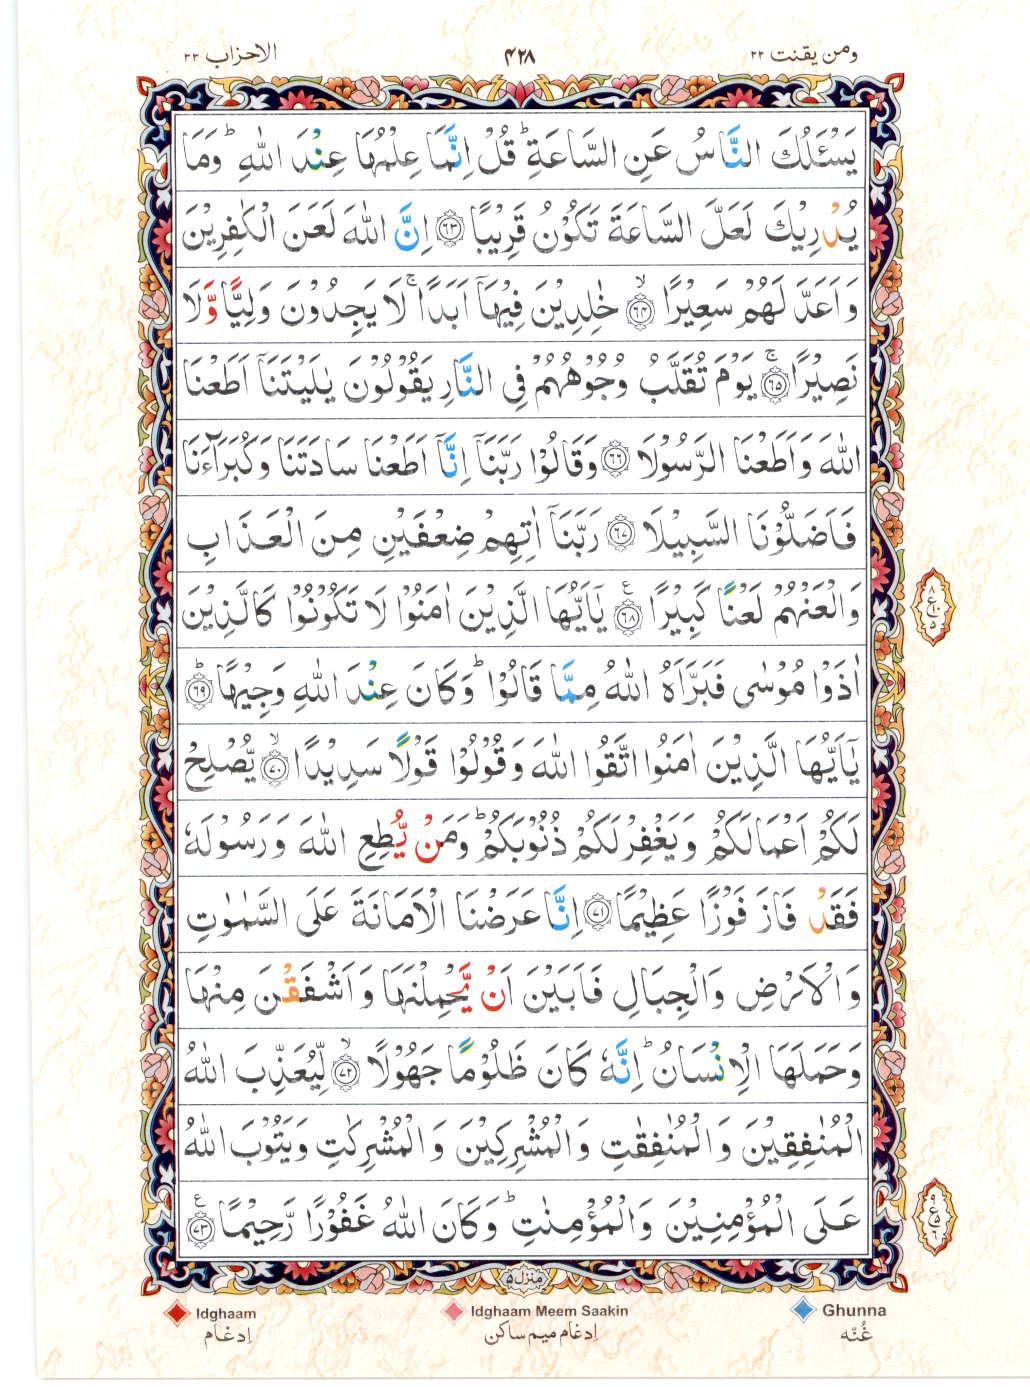 ومن يقنت ٢٢
۴۲۸
الاحزاب ٣٣
يَسْـَٔلُكَ النَّاسُ عَنِ السَّاعَةِ ؕ قُلْ اِنَّمَا عِلْمُهَا عِنْدَ اللّٰهِ ؕ وَمَا
يُدْرِيْكَ لَعَلَّ السَّاعَةَ تَكُوْنُ قَرِيْبًا ﴿٦٣﴾ اِنَّ اللّٰهَ لَعَنَ الْكٰفِرِيْنَ
وَاَعَدَّ لَهُمْ سَعِيْرًا ۙ﴿٦٤﴾ خٰلِدِيْنَ فِيْهَاۤ اَبَدًا ۚ لَا يَجِدُوْنَ وَلِيًّا وَّلَا
نَصِيْرًا ۚ﴿٦٥﴾ يَوْمَ تُقَلَّبُ وُجُوْهُهُمْ فِى النَّارِ يَقُوْلُوْنَ يٰلَيْتَنَاۤ اَطَعْنَا
اللّٰهَ وَاَطَعْنَا الرَّسُوْلَا ﴿٦٦﴾ وَقَالُوْا رَبَّنَاۤ اِنَّاۤ اَطَعْنَا سَادَتَنَا وَكُبَرَآءَنَا
فَاَضَلُّوْنَا السَّبِيْلَا ﴿٦٧﴾ رَبَّنَاۤ اٰتِهِمْ ضِعْفَيْنِ مِنَ الْعَذَابِ
وَالْعَنْهُمْ لَعْنًا كَبِيْرًا ﴿٦٨﴾ع يٰۤاَيُّهَا الَّذِيْنَ اٰمَنُوْا لَا تَكُوْنُوْا كَالَّذِيْنَ
اٰذَوْا مُوْسٰى فَبَرَّاَهُ اللّٰهُ مِمَّا قَالُوْا ؕ وَكَانَ عِنْدَ اللّٰهِ وَجِيْهًا ؕ﴿٦٩﴾
يٰۤاَيُّهَا الَّذِيْنَ اٰمَنُوا اتَّقُوا اللّٰهَ وَقُوْلُوْا قَوْلًا سَدِيْدًا ۙ﴿٧٠﴾ يُّصْلِحْ
لَكُمْ اَعْمَالَكُمْ وَيَغْفِرْ لَكُمْ ذُنُوْبَكُمْ ؕ وَمَنْ يُّطِعِ اللّٰهَ وَرَسُوْلَهٗ
فَقَدْ فَازَ فَوْزًا عَظِيْمًا ﴿٧١﴾ اِنَّا عَرَضْنَا الْاَمَانَةَ عَلَى السَّمٰوٰتِ
وَالْاَرْضِ وَالْجِبَالِ فَاَبَيْنَ اَنْ يَّحْمِلْنَهَا وَاَشْفَقْنَ مِنْهَا
وَحَمَلَهَا الْاِنْسَانُ ؕ اِنَّهٗ كَانَ ظَلُوْمًا جَهُوْلًا ۙ﴿٧٢﴾ لِّيُعَذِّبَ اللّٰهُ
الْمُنٰفِقِيْنَ وَالْمُنٰفِقٰتِ وَالْمُشْرِكِيْنَ وَالْمُشْرِكٰتِ وَيَتُوْبَ اللّٰهُ
عَلَى الْمُؤْمِنِيْنَ وَالْمُؤْمِنٰتِ ؕ وَكَانَ اللّٰهُ غَفُوْرًا رَّحِيْمًا ﴿٧٣﴾ع
٨
ع١٠
۵
٩
ع۵
٦
منزل ۵
Ghunna
غُنَّه
Idghaam Meem Saakin
اِدغام ميم ساكن
Idghaam
اِدغام